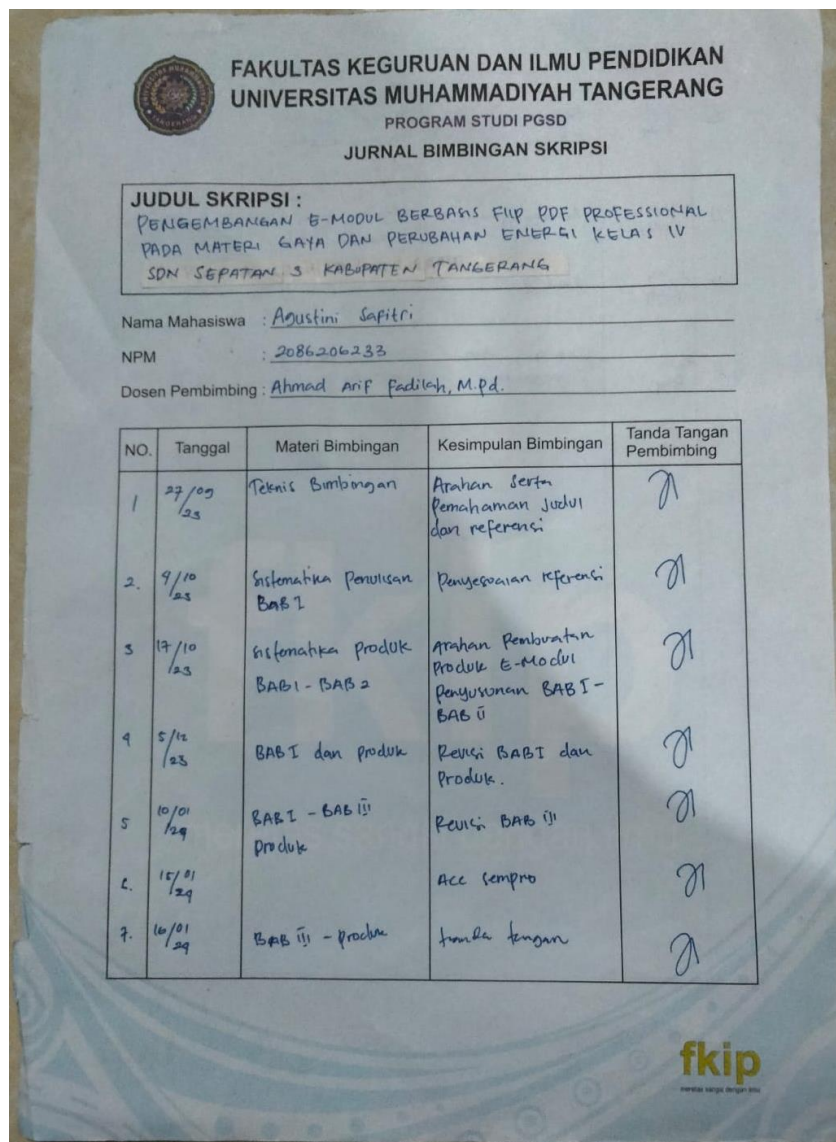 FAKULTAS KEGURUAN DAN ILMU PENDIDIKAN
UNIVERSITAS MUHAMMADIYAH TANGERANG
PROGRAM STUDI PGSD
JURNAL BIMBINGAN SKRIPSI
JUDUL SKRIPSI :
PENGEMBANGAN E-MODUL BERBASIS FlIP PDF PROFESSIONAL
PADA MATERI GAYA DAN PERUBAHAN ENERGI KELAS IV
SDN SEPATAN 3 KABUPATEN TANGERANG
Nama Mahasiswa : Agustini Sapitri
NPM : 2086206233
Dosen Pembimbing : Ahmad Arif Fadilah, M.Pd.
NO. Tanggal Materi Bimbingan Kesimpulan Bimbingan Tanda Tangan Pembimbing
1 27/09/23 Teknis Bimbingan Arahan Serta
Pemahaman Judul
dan referensi
2. 9/10/23 Sistematika Penulisan Penyesuaian referensi
BAB 1
3 17/10/23 Sistematika Produk Arahan Pembuatan
Produk E-Modul
BAB1 - BAB 2 Penyusunan BAB I -
BAB II
4 5/12/23 BAB I dan Produk Revisi BAB I dan
Produk.
5 10/01/24 BAB I - BAB III Revisi BAB III
produk
6. 15/01/24 Acc Sempro
7. 16/01/24 BAB III - produk tanda tangan
fkip